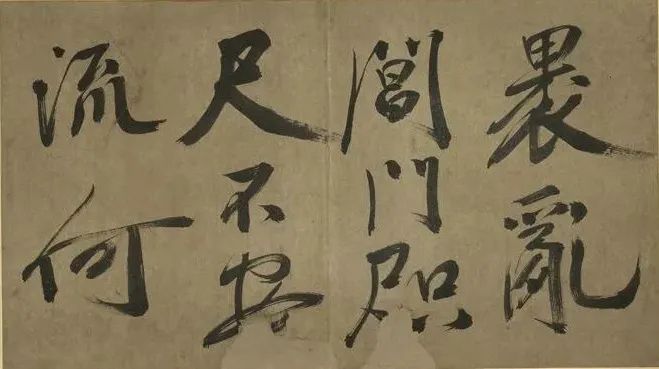 褁亂
閶門咫
尺不安
流何